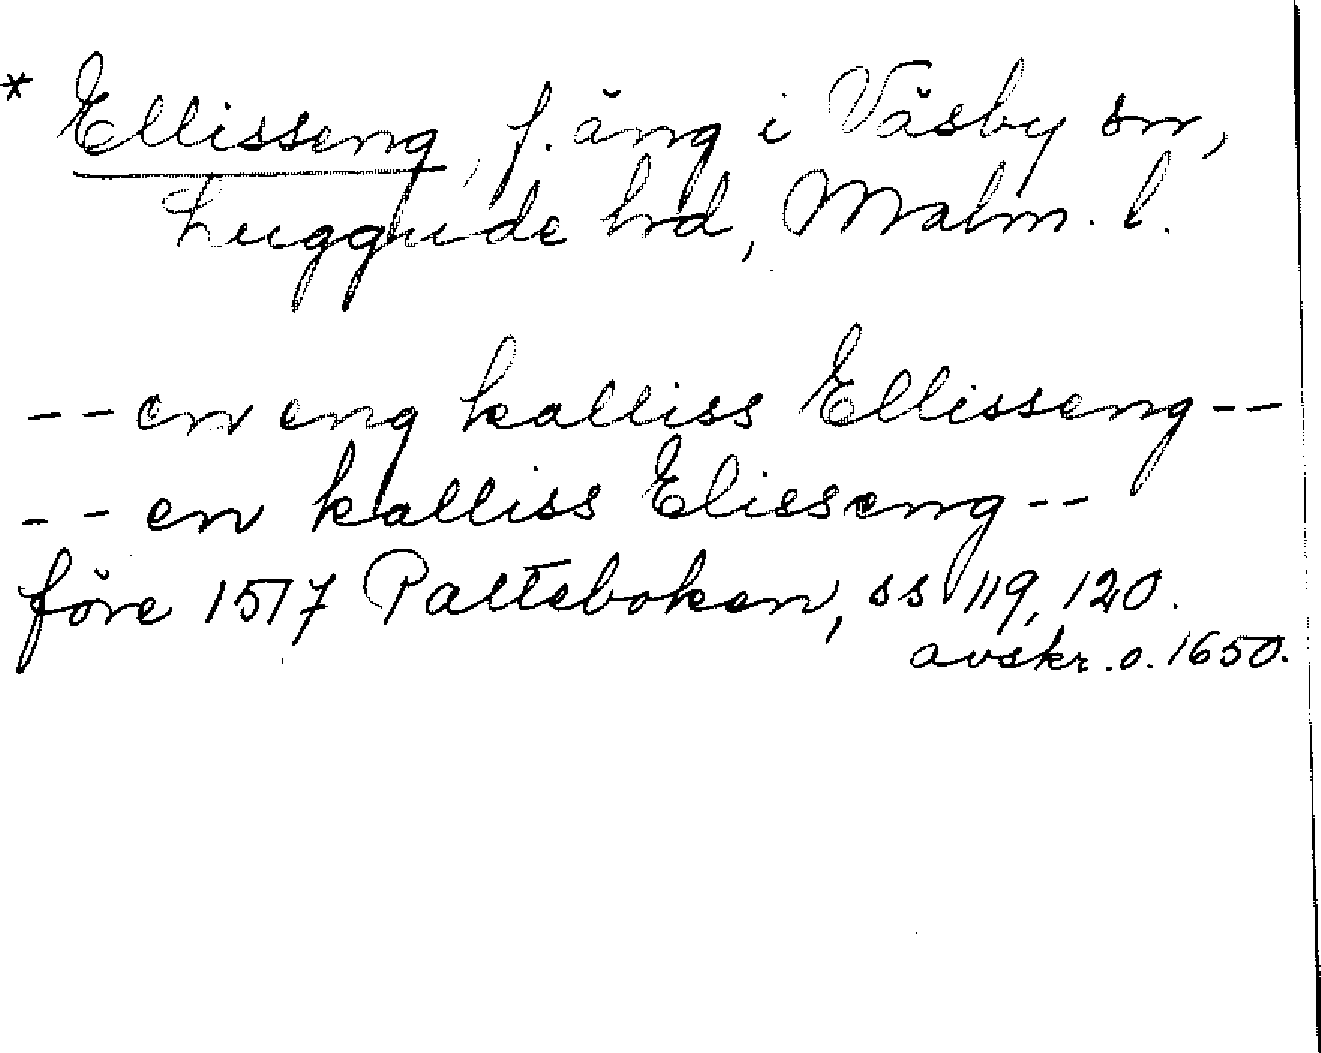 * Ellisseng, f. äng i Väsby sn,
Luggude hd, Malm. l.
-- en eng kalliss Ellisseng --
-- en kalliss Elisseng --
före 1517 Palteboken, ss 119, 120.
avskr. o. 1650.